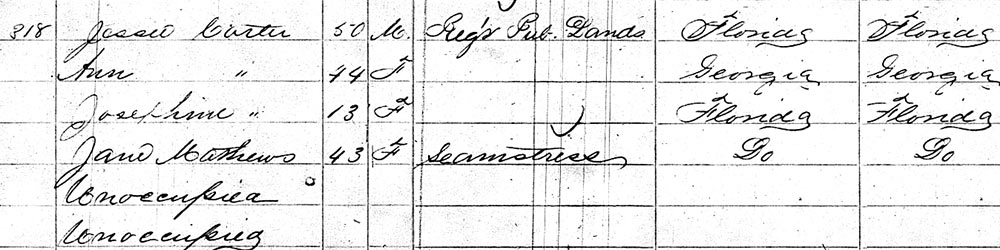 318 Jessee Carter 50 M. Reg'r Pub. Lands Florida Florida
Ann " 44 F Georgia Georgia
Josephine " 13 F Florida Florida
Jane Mathews 43 F Seamstress Do Do
Unoccupied
Unoccupied